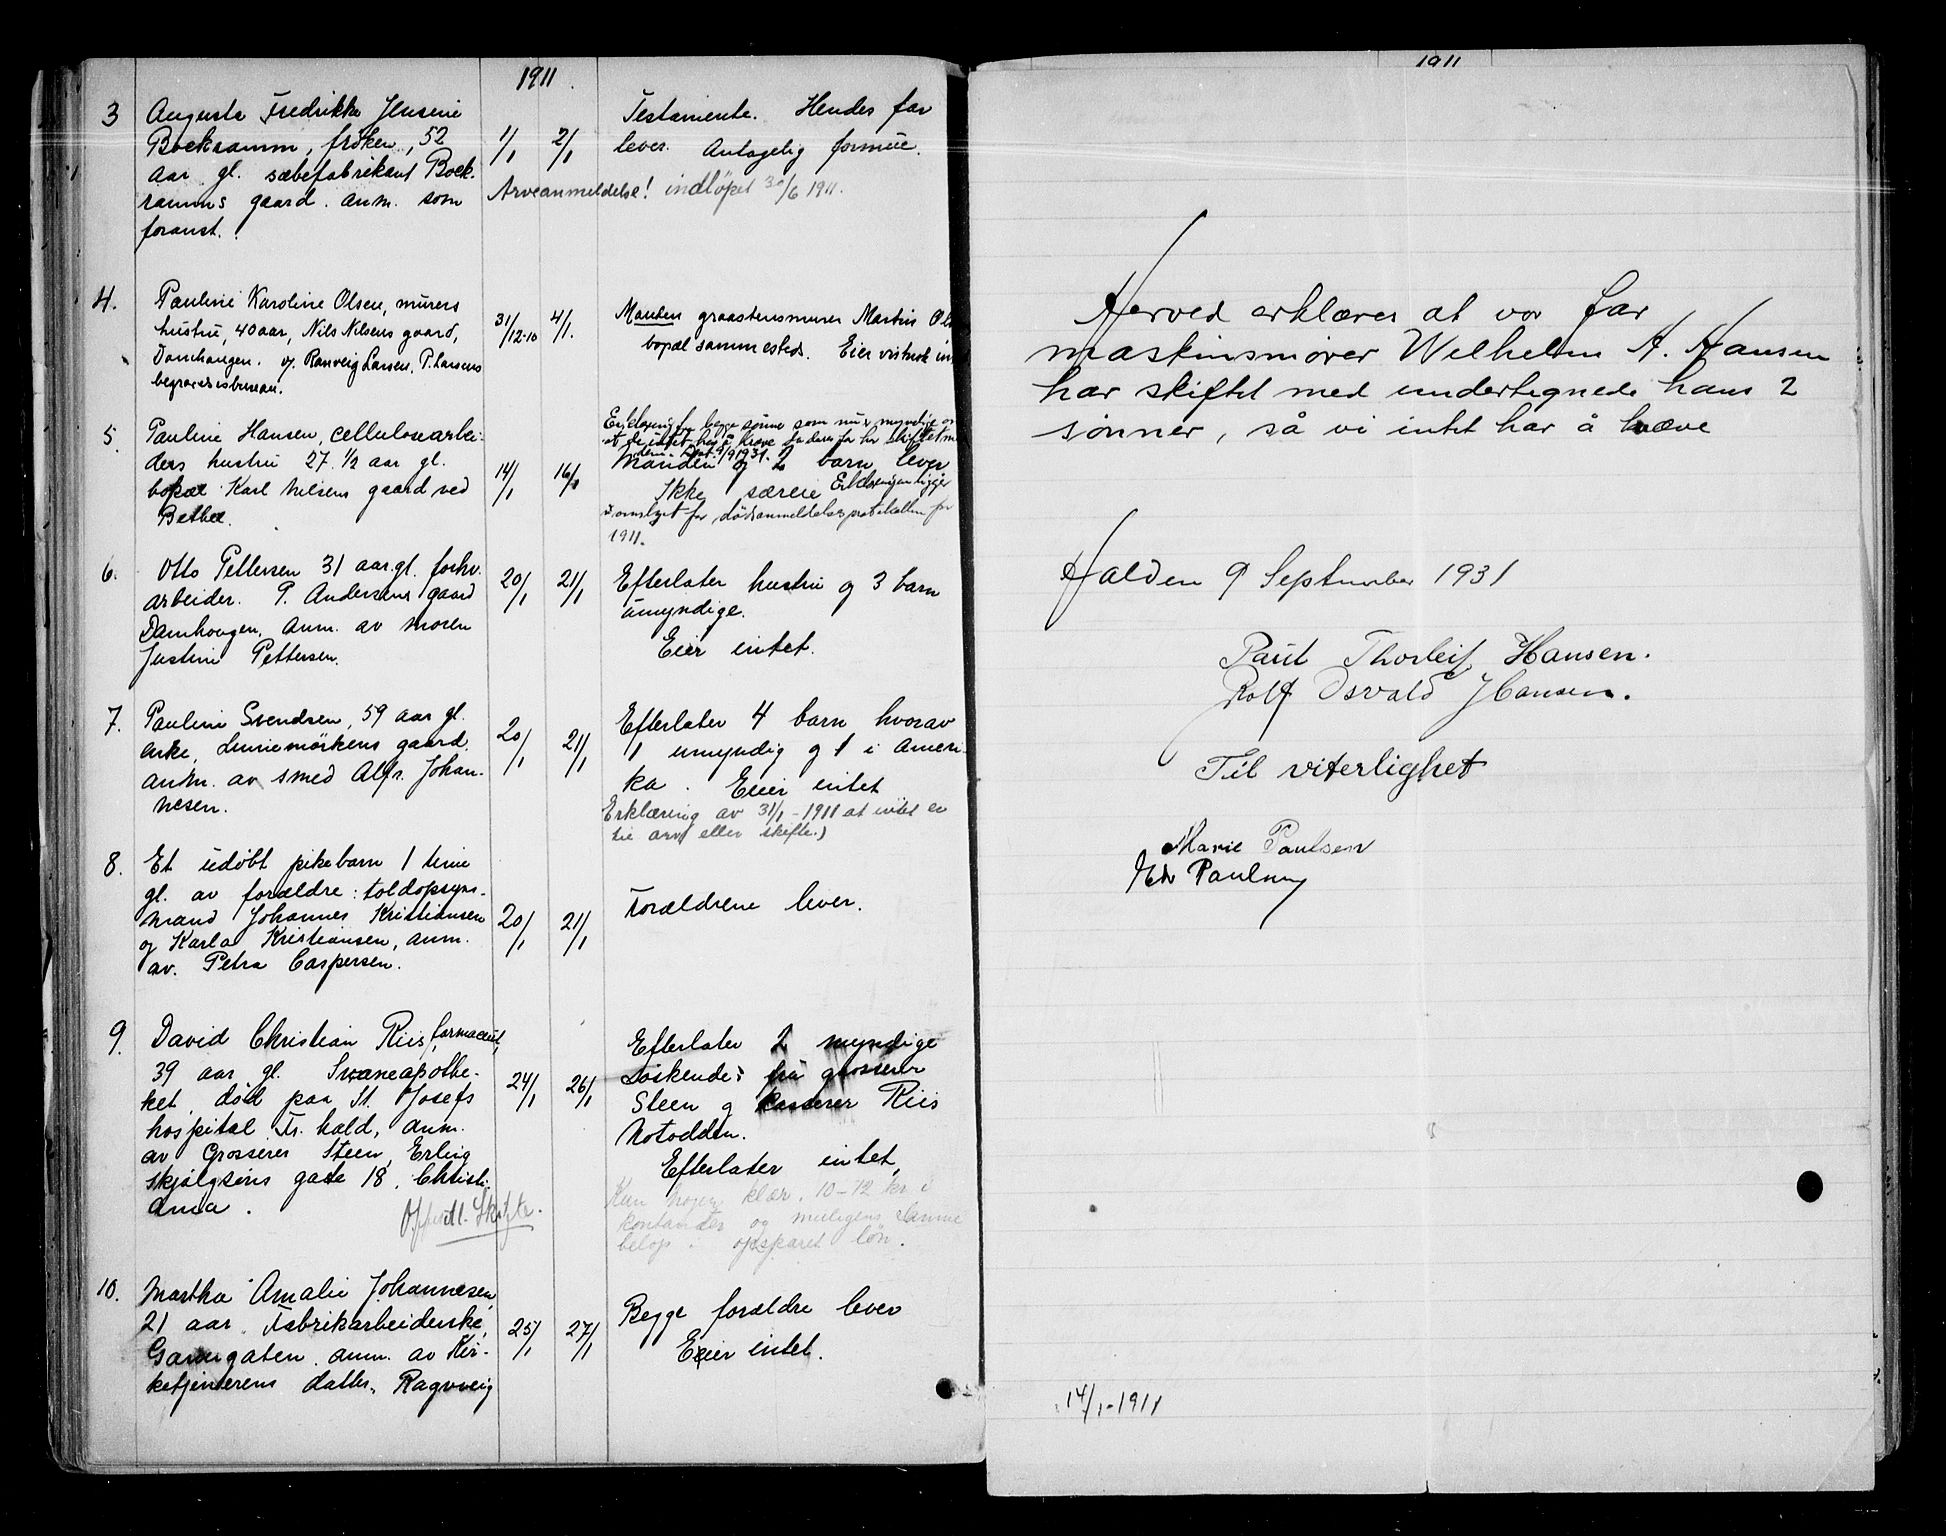 1911.
3 Augusta Fredrikke Jensine
Bockramm, frøken, 52
aar gl. sæbefabrikant Bock-
ramms gaard. anm. som
foranst.
1/1 2/1
Testamente. Hendes far
lever. Antagelig formue.
Arveanmeldelse! indløpet 30/6 1911.
4. Pauline Karoline Olsen, murers
hustru, 40 aar, Nils Nilsens gaard,
Damhaugen. v/ Ranveig Larsen, P. Larsens
begravelsesbureau.
31/12-10 4/1.
Manden graastensmurer Martin
bopæl sammesteds. Eier vistnok
5. Pauline Hansen, cellulosearbei-
ders hustru 27 1/2 aar gl.
bopæl Karl Nilsens gaard ved
Bethel.
14/1 16/1
Erklæring fra begge sønner som nu er myndige
at de intet har å kreve da deres far har skiftet m
dem. Dat. 9/9 1931.
Manden og 2 barn lever
Ikke særeie Erklæringen ligger
i omslaget for dødsanmeldelsesprotokollen for
1911.
6. Otto Pettersen 31 aar gl. forhv.
arbeider. P. Andersens gaard
Damhaugen. Anm. av moren
Justine Pettersen.
20/1 21/1
Efterlater hustru og 3 barn
umyndige.
Eier intet.
7. Pauline Svendsen, 59 aar gl.
enke, gaard.
anm. av smed Alfr. Johan-
nesen.
20/1 21/1
Efterlater 4 barn hvorav
1 umyndig og 1 i Ameri-
ka. Eier intet
Erklæring av 31/1-1911 at intet er
til arv eller skifte.)
8. Et udøbt pikebarn 1 time
gl. av forældre: toldopsyns-
mand Johannes Kristiansen
og Karla Kristiansen, anm.
av. Petra Caspersen.
20/1 21/1
Forældrene lever.
9. David Christian Riis, farmaceut,
39 aar gl. Svaneapothe-
ket, død paa St. Josefs
hospital Fr. hald, anm.
av Grosserer Steen, Erling
Skjalgsøns gate 18, Christi-
ania.
24/1 26/1
Efterlater 2 myndige
søskende: fru grosserer
Steen og kasserer Riis
Notodden.
Efterlater intet,
Kun nogen klær. 10-12 kr. i
kontanter og muligens samme
beløp i opsparet løn.
Skifte.
10. Martha Amalie Johannesen,
21 aar. Fabrikarbeiderske,
anm. av Kir-
ketjenerens datter, Ragnveig
25/1 27/1
Begge forældre lever
Eier intet.
1911
Herved erklæres at vor far
maskinsmører Wilhelm A. Hansen
har skiftet med undertegnede hans 2
sønner, så vi intet har å kræve
Halden 9 September 1931
Paul Thorleif Hansen.
Rolf Osvald Hansen.
Til viterlighet
Marie Paulsen
Paulsen
14/1-1911